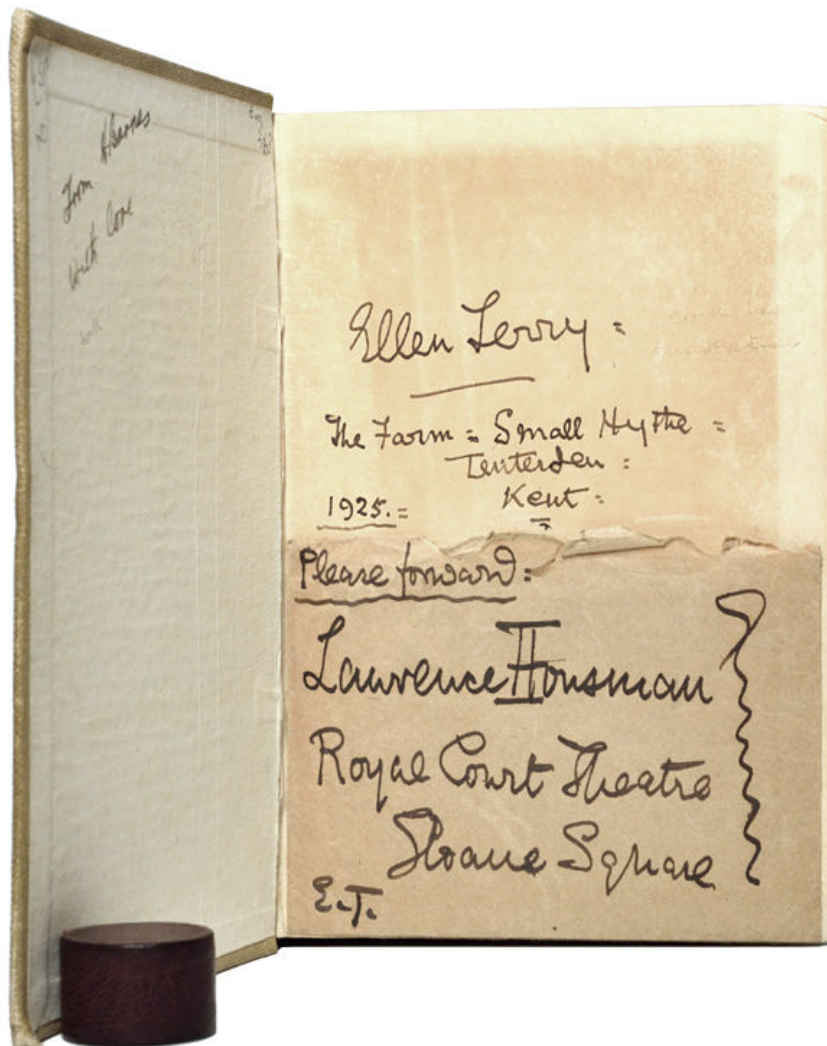 From
With love
Ellen Terry =
The Farm = Small Hythe =
Tenterden =
1925. = Kent =
Please forward =
Laurence Housman
Royal Court Theatre
Sloane Square
E.T.